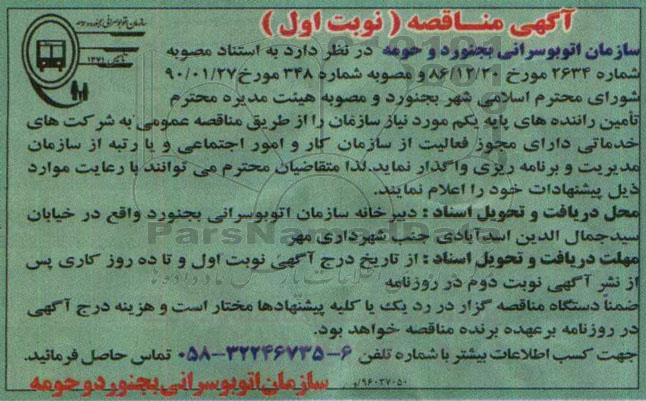 آگهی مناقصه ( نوبت اول )
سازمان اتوبوسرانی بجنورد و حومه
تاسیس ۱۳۷۱
سازمان اتوبوسرانی بجنورد و حومه در نظر دارد به استناد مصوبه
شماره ۲۶۳۴ مورخ ۸۶/۱۲/۲۰ و مصوبه شماره ۳۴۸ مورخ ۹۰/۰۱/۲۷
شورای محترم اسلامی شهر بجنورد و مصوبه هیئت مدیره محترم
تأمین راننده های پایه یکم مورد نیاز سازمان را از طریق مناقصه عمومی به شرکت های
خدماتی دارای مجوز فعالیت از سازمان کار و امور اجتماعی و یا رتبه از سازمان
مدیریت و برنامه ریزی واگذار نماید.لذا متقاضیان محترم می توانند با رعایت موارد
ذیل پیشنهادات خود را اعلام نمایند.
محل دریافت و تحویل اسناد : دبیرخانه سازمان اتوبوسرانی بجنورد واقع در خیابان
سیدجمال الدین اسدآبادی جنب شهرداری مهر
مهلت دریافت و تحویل اسناد : از تاریخ درج آگهی نوبت اول و تا ده روز کاری پس
از نشر آگهی نوبت دوم در روزنامه
ضمناً دستگاه مناقصه گزار در رد یک یا کلیه پیشنهادها مختار است و هزینه درج آگهی
در روزنامه برعهده برنده مناقصه خواهد بود.
جهت کسب اطلاعات بیشتر با شماره تلفن ۶-۳۲۲۴۶۷۳۵-۰۵۸ تماس حاصل فرمائید.
سازمان اتوبوسرانی بجنورد و حومه
۹۶۰۳۷۰۵۰/و
ParsNamadData